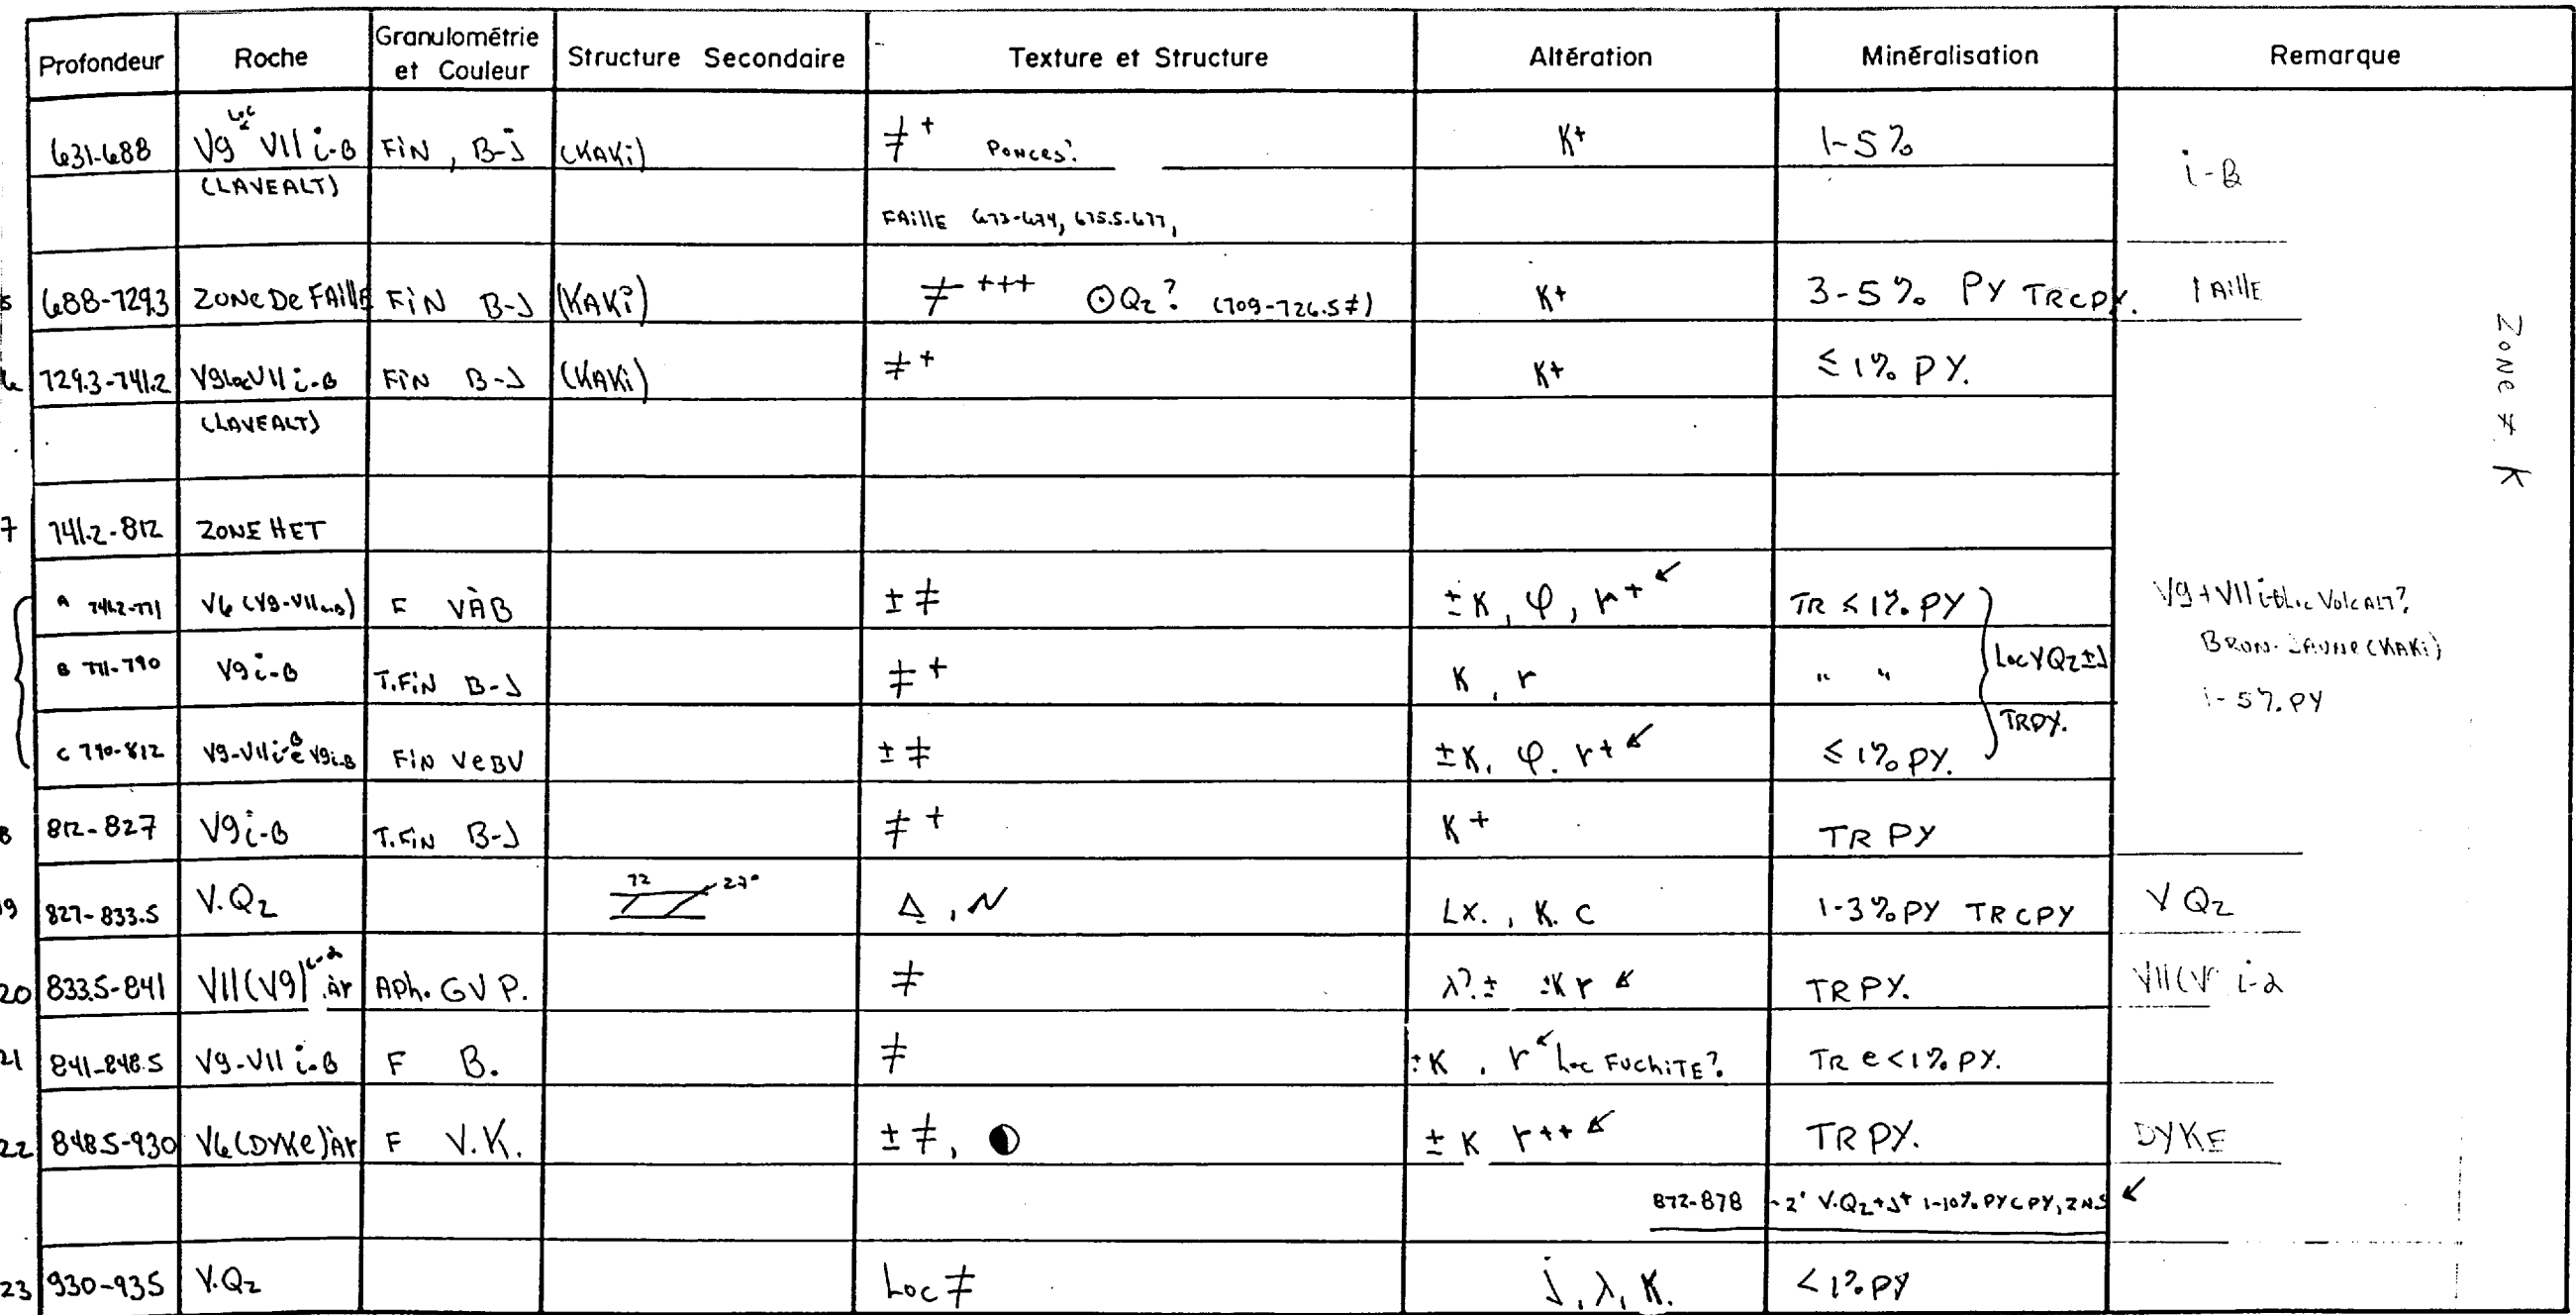 Profondeur Roche Granulométrie et Couleur Structure Secondaire Texture et Structure Altération Minéralisation Remarque
631-688 V9 Loc VII i-B FIN, B-J (KAKi) ≠+ PONCES? K+ 1-5%
(LAVEALT) i-B
FAILLE 673-674, 675.5-677,
688-729.3 ZONE DE FAILLE FIN B-J (KAKi) ≠+++ ⊙Qz? (709-726.5≠) K+ 3-5% PY TRCPY. FAILLE
729.3-741.2 V9 Loc VII i-B FIN B-J (KAKi) ≠+ K+ ≤1% PY.
(LAVEALT)
ZONE ≠ K
7 741.2-812 ZONE HET
A 741.2-771 V6 (V9-VII i-B) F VÀB ±≠ ±K, φ, r+↙ TR ≤1% PY V9+VII i-B Loc VOLC ALT?
B 771-790 V9 i-B T.FIN B-J ≠+ K, r " " Loc VQz±J BRUN-JAUNE (KAKi)
1-5% PY
C 790-812 V9-VII i-B e V9 i-B FIN VeBV ±≠ ±K, φ. r+↙ ≤1% PY. TRPY.
8 812-827 V9 i-B T.FIN B-J ≠+ K+ TR PY
19 827-833.5 V.Qz 72 27° Δ, N LX., K. C 1-3% PY TRCPY VQz
20 833.5-841 VII(V9) i-α Àr APh. GV P. ≠ λ?± ±K r↙ TR PY. VII(V9 i-α
21 841-848.5 V9-VII i-B F B. ≠ ±K, r↙ Loc FUCHiTE? TR e <1% PY.
22 848.5-930 V6 (DYKE) Àr F V.K. ±≠, ◐ ±K r++↙ TR PY. DYKE
872-878 ~2' V.Qz+J+ 1-10% PYCPY, ZNS ↙
23 930-935 V.Qz Loc ≠ j, λ, K. <1% PY